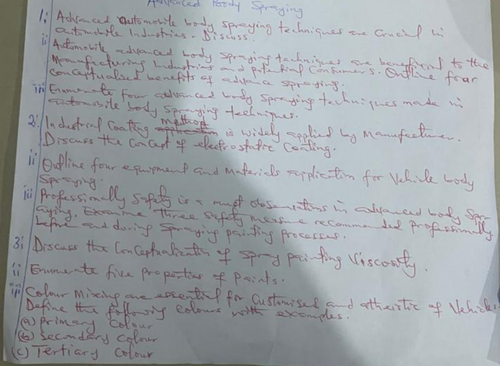 Advanced Body Spraying
1. i Advanced automobile body spraying techniques are crucial in
automobile industries. Discuss.
ii Automobile advanced body spraying techniques are beneficial to the
Manufacturing industries and potential consumers. Outline four
conceptualized benefits of advance spraying.
iii Enumerate four advanced body spraying techniques made in
automobile body spraying techniques.
2. i Industrial Coating method is widely applied by Manufacturer.
Discuss the concept of electrostatic Coating.
ii Outline four equipment and Materials application for Vehicle body
Spraying.
iii Professionally Safety is a must in advanced body Spr-
aying. Examine three safety measure recommended professionally
before and during spraying painting processes.
3. i Discuss the Conceptualization of Spray painting Viscosity.
ii Enumerate five Properties of Paints.
iii Colour Mixing are essential for Customised and of Vehicle.
Define the following Colours with examples.
(a) Primary Colour
(b) Secondary Colour
(c) Tertiary Colour